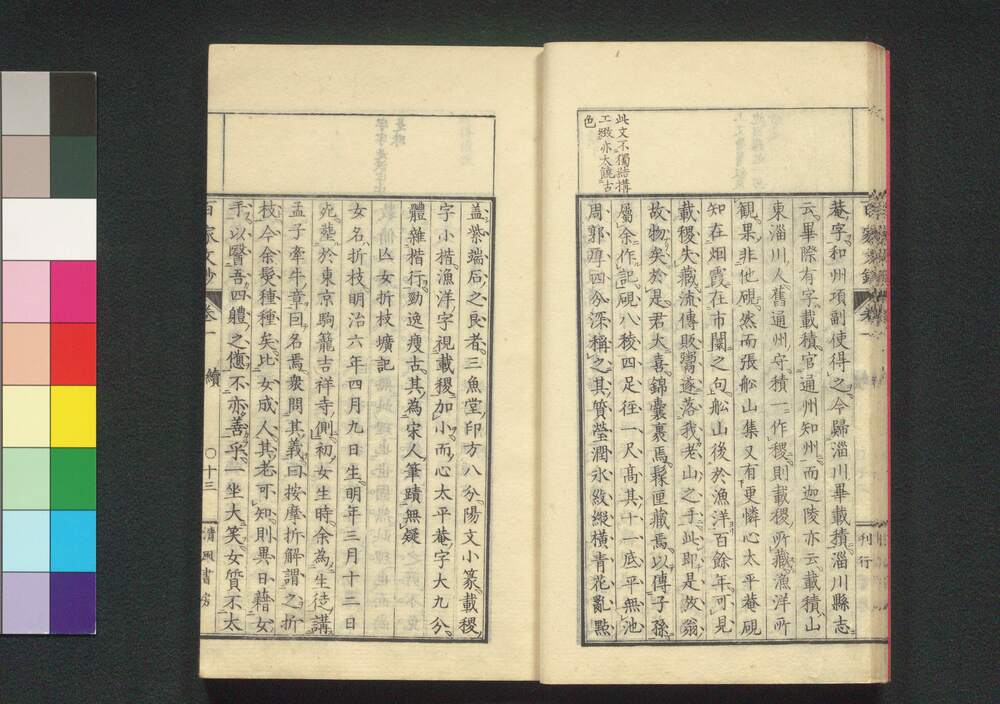 此文不獨結構
工緻亦太饒古
色
菴字和州項副使得之今歸淄川畢載積淄川縣志
云畢際有字載積官通州知州而迦陵亦云載積山
東淄川人舊通州守積一作稷則載稷所藏漁洋所
觀果非他硯然而張船山集又有更憐心太平菴硯
知在烟霞在市闤之句船山後於漁洋百餘年可見
載稷失藏流傳販鬻遂落我老山之手此即是放翁
故物矣於是君大喜錦囊裹焉髹匣藏焉以傳子孫
屬余作記硯八稜四足徑一尺高其十一底平無池
周郭專四分深稱之其質瑩潤氷紋縱橫青花亂點
蓋紫端石之良者三魚堂印方八分陽文小篆載稷
字小楷漁洋字視載稷加小而心太平菴字大九分
體雜楷行勁逸瘦古其為宋人筆蹟無疑
亾女折枝壙記
女名折枝明治六年四月九日生明年三月十二日
死塟於東京駒籠吉祥寺側初女生時余為生徒講
孟子牽牛章因名焉衆問其義曰按摩折解謂之折
枝今余髮種種矣比女成人其老可知則異日藉女
手以醫吾四體之憊不亦善乎一坐大笑女質不太
百家文鈔 卷一 續 〇十三 清風書房
刊行